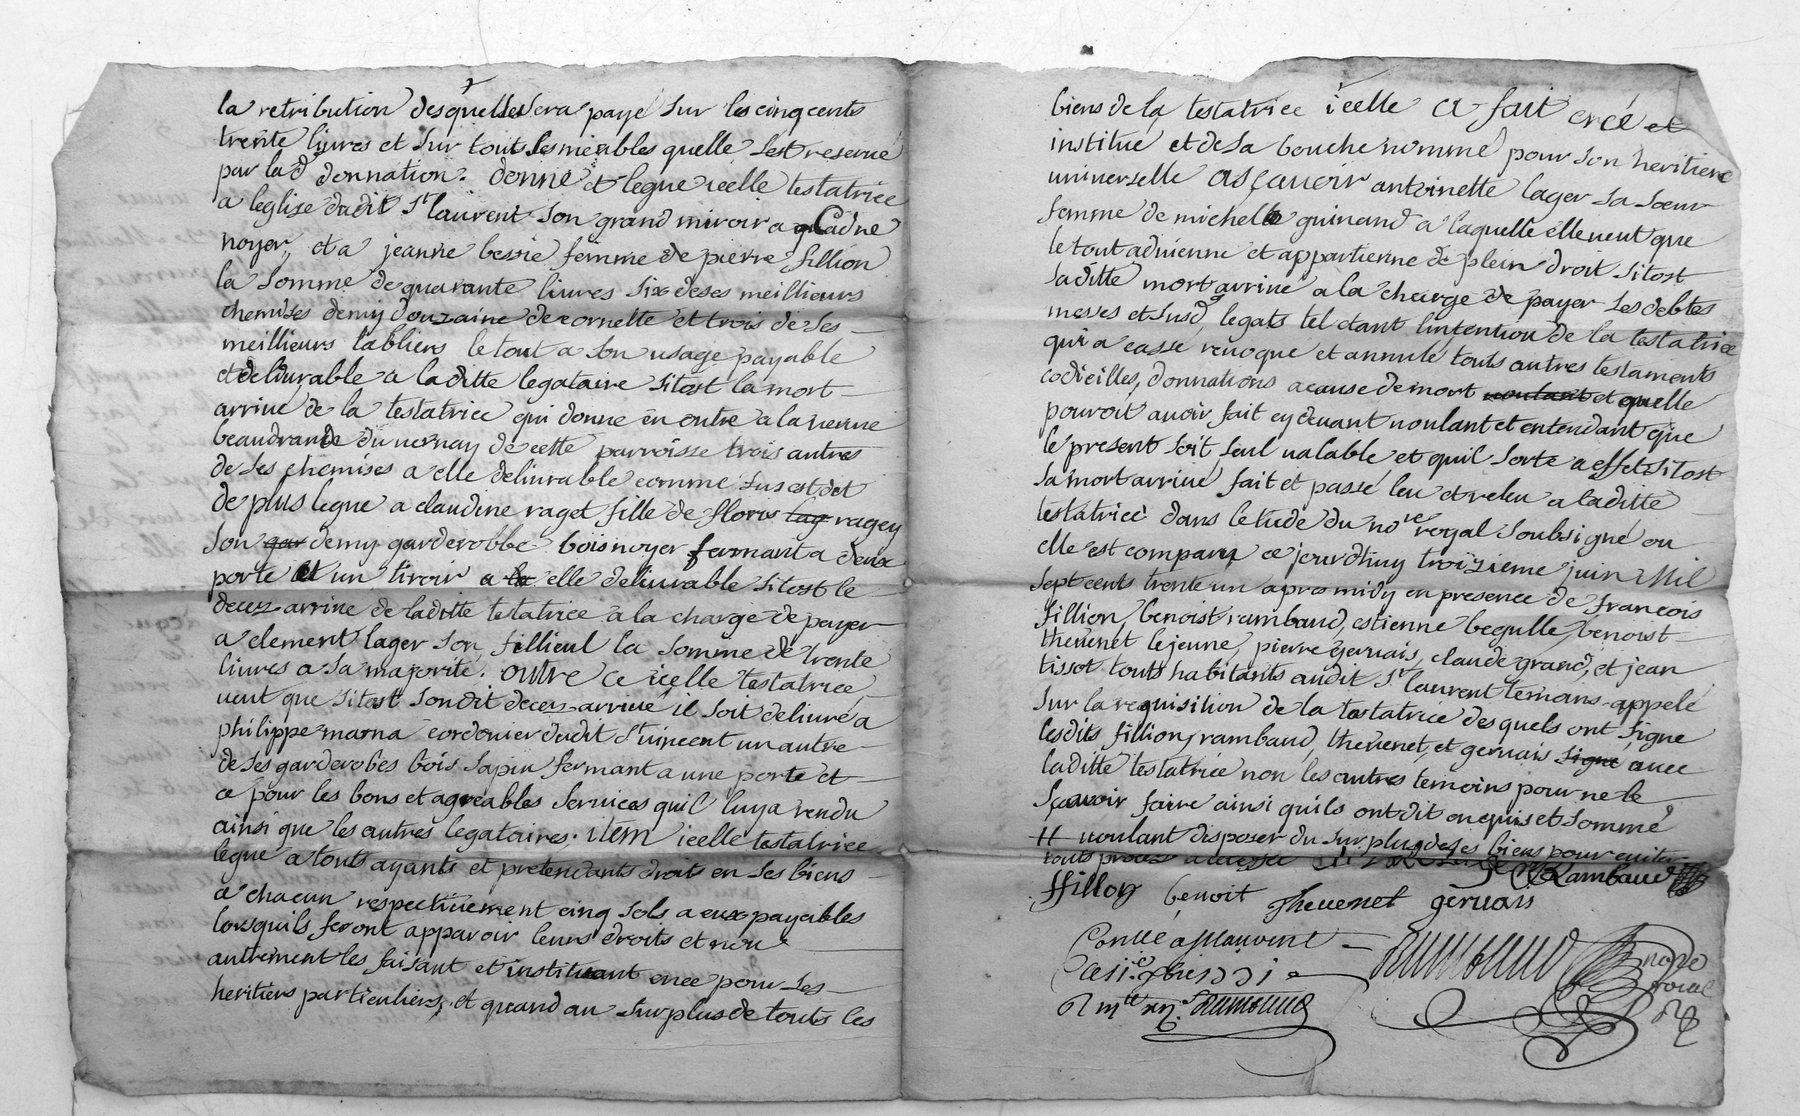 la retribution desquelles sera payé sur les cinq cents
trente livres et sur touts les meubles quelle sest reservé
par lad donnation. donne et legue icelle testatrice
a leglise dudit St laurent son grand miroir a Cadre
noyer, et a jeanne bessie femme de pierre fillion
la somme de quarante livres six de ses meillieurs
chemises demy douzaine de cornette et trois de ses
meillieurs tabliers le tout a son usage payable
et delivrable a laditte legataire sitost la mort
arrivé de la testatrice qui donne en outre a la veuve
beaudrande du vernay de cette parroisse trois autres
de ses chemises a elle delivrable comme sus est dit
de plus legue a claudine raget fille de floris lag ragey
son gar demy garderobbe bois noyer fermant a deux
porte et un tiroir a la elle delivrable sitost le
decez arrivé de laditte testatrice a la charge de payer
a clement lager son fillieul la somme de trente
livres a sa majorité. outre ce icelle testatrice
veut que sitost sondit decez arrivé il soit delivré a
philippe marna cordonier dudit St vincent un autre
de ses garderobes bois sapin fermant a une porte et
ce pour les bons et agreables services quil luy a rendu
ainsi que les autres legataires. item icelle testatrice
legue a touts ayants et pretendants droits en ses biens
a chacun respectivement cinq sols a eux payables
lorsquils feront apparoir leurs droits et non
autrement les faisant et instituant avec pour ses
heritiers particuliers, et quand au surplus de touts les
biens de la testatrice icelle a fait créé et
institué et de sa bouche nommé pour son heritiere
universelle asçavoir antoinette lager sa soeur
femme de michelle guinand a laquelle elle veut que
le tout advienne et appartienne de plein droit sitost
saditte mort arrivé a la charge de payer ses debtes
messes et susd legats tel etant lintention de la testatrice
qui a cassé revoqué et annulé touts autres testaments
codicilles, donnations a cause de mort voulant et quelle
pouroit avoir fait cy devant voulant et entendant que
le present soit seul valable et quil sorte a effet sitost
sa mort arrivé fait et passé leu et releu a laditte
testatrice dans letude du nore royal soubsigné ou
elle est comparu ce jourdhuy troizieme juin Mil
sept cents trente un apres midy en presence de francois
fillion, benoist rambaud, estienne begulle, benoist
thevenet le jeune, pierre gervais, claude grand, et jean
tissot touts habitants audit St laurent temoins appelé
sur la requisition de la testatrice desquels ont signe
lesdits fillion, rambaud, thevenet, et gervais signé avec
laditte testatrice non les autres temoins pour ne le
sçavoir faire ainsi quils ont dit enquis et sommé
H voulant disposer du surplus de ses biens pour eviter
touts proces
Rambaud
ffillon benoit Thevenet gervais